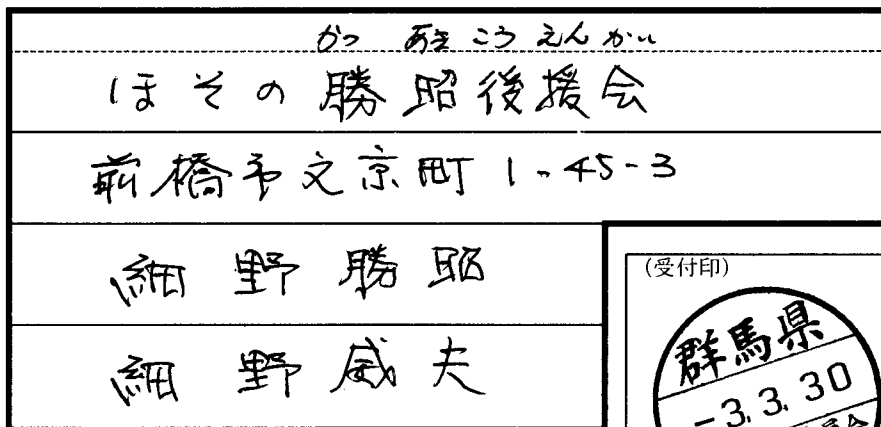 かつ あき こう えん かい
ほその勝昭後援会
前橋市文京町1-45-3
細野勝昭
細野威夫
(受付印)
群馬県
-3.3.30